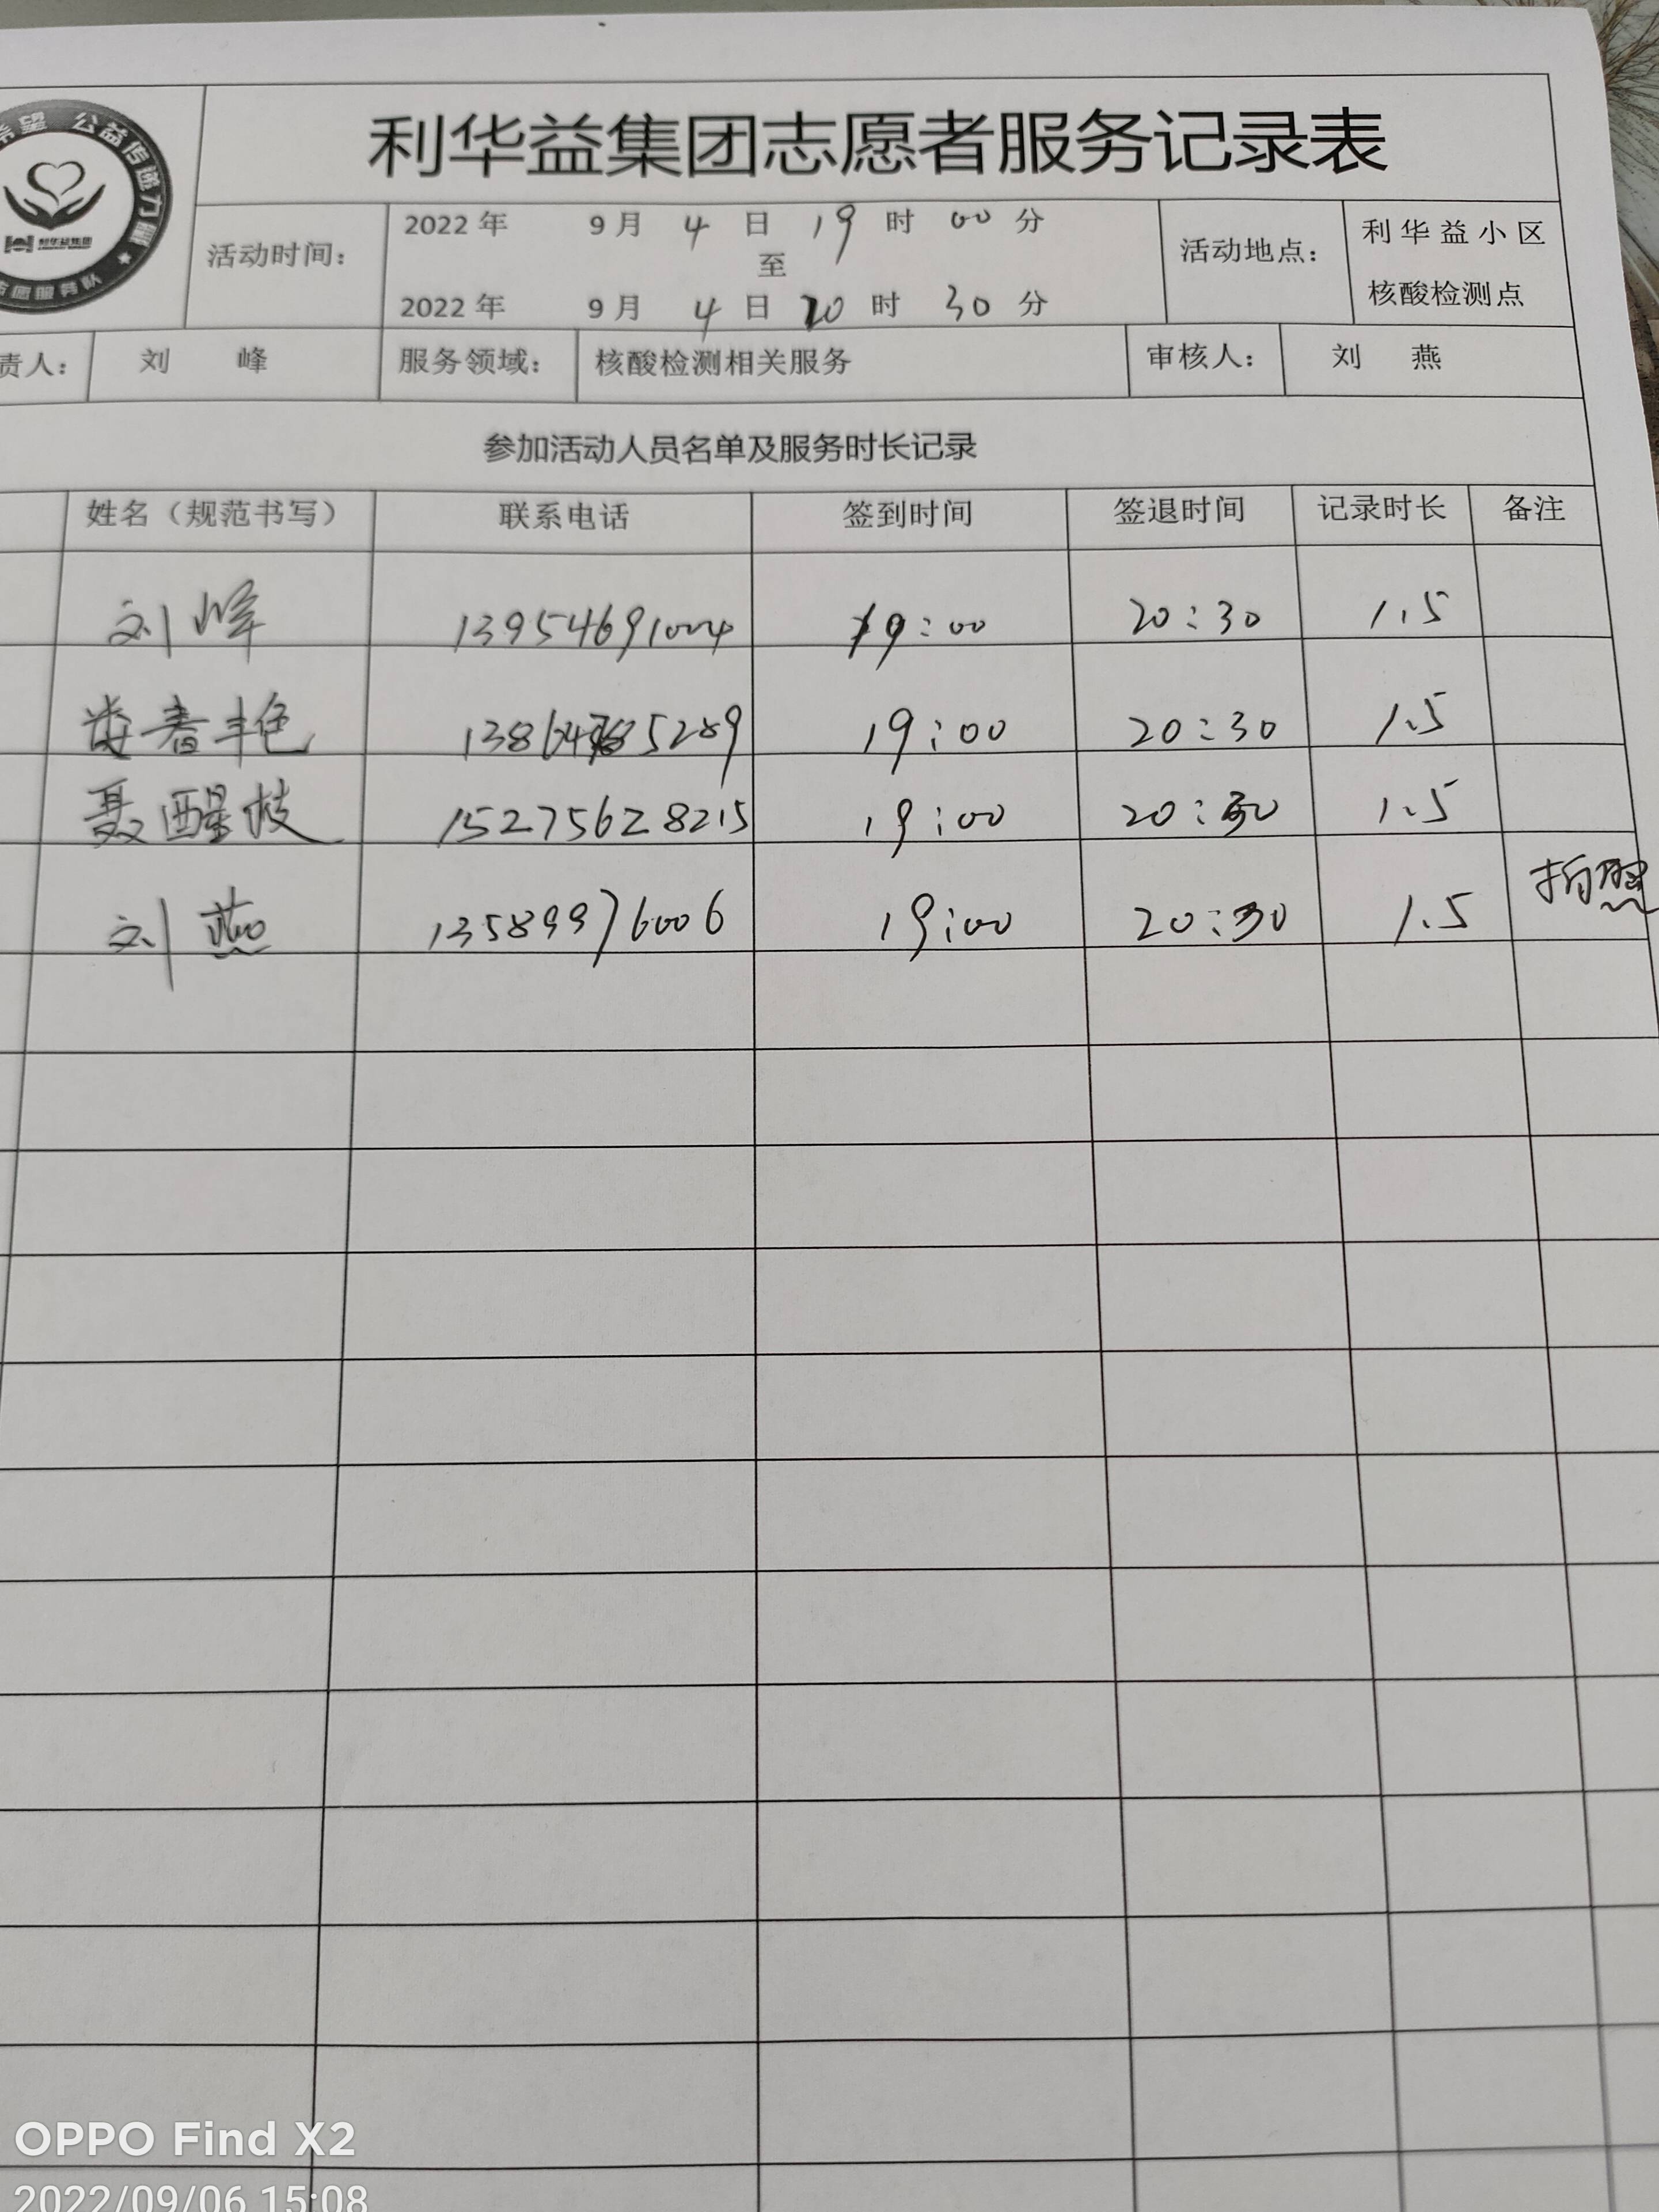 希望 公益传递力量
利华益集团
志愿服务队
利华益集团志愿者服务记录表
活动时间：
2022 年 9 月 4 日 19 时 00 分
至
2022 年 9 月 4 日 20 时 30 分
活动地点：
利华益小区
核酸检测点
责人： 刘 峰 服务领域： 核酸检测相关服务 审核人： 刘 燕
参加活动人员名单及服务时长记录
姓名（规范书写） 联系电话 签到时间 签退时间 记录时长 备注
刘峰 13954691004 19:00 20:30 1.5
19:00 20:30 1.5
聂醒枝 15275628215 19:00 20:30 1.5
刘燕 13589976006 19:00 20:30 1.5 拍照
OPPO Find X2
2022/09/06 15:08